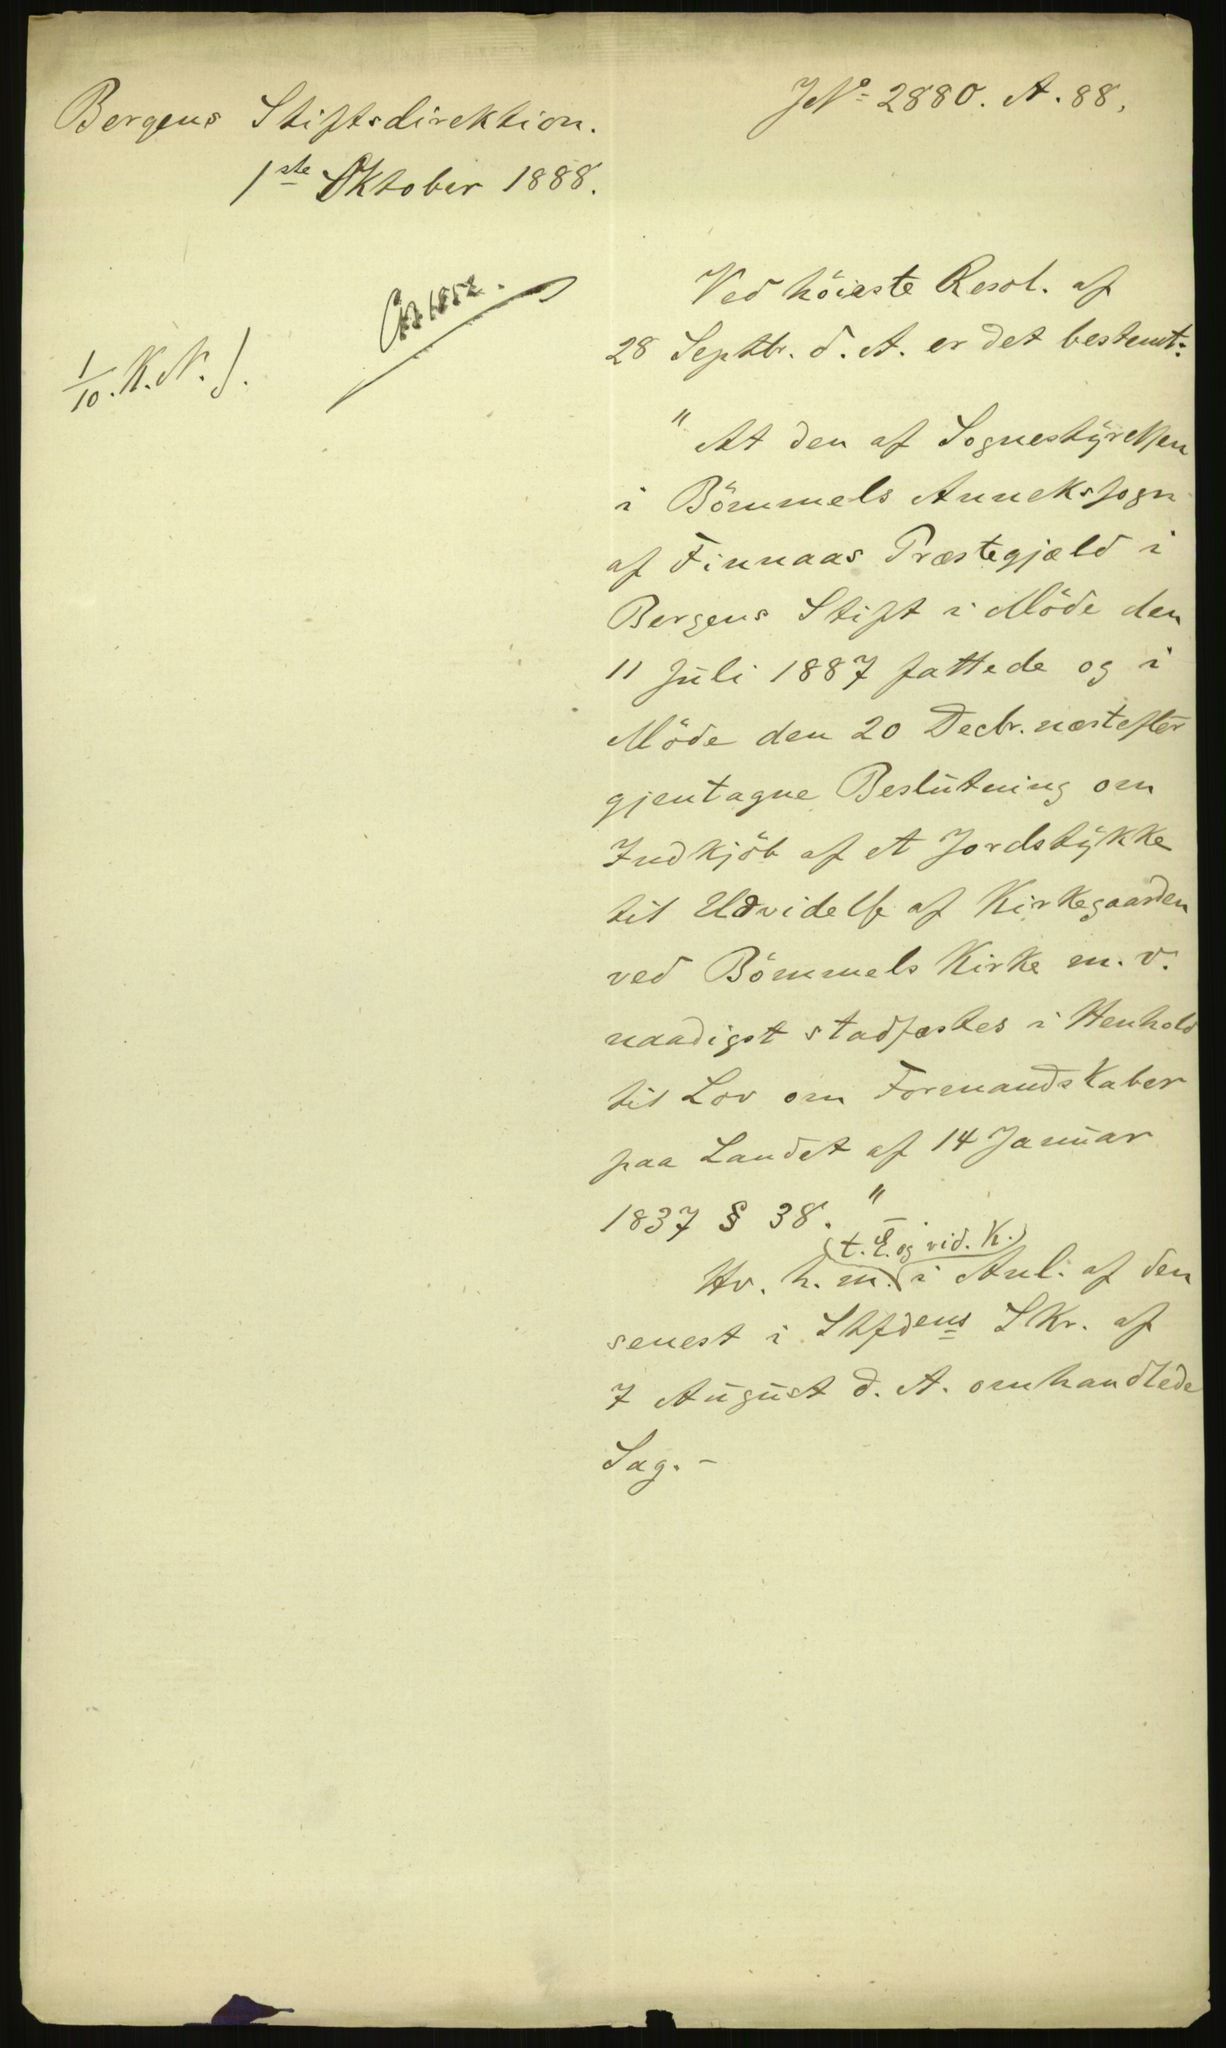 Bergens Stiftsdirektion.
1ste Oktober 1888.
JNo 2880. A. 88.
1/10. K. N.
Ved höieste Resol. af
28 Septbr. d. A. er det bestemt:
" At den af Sognestyrelsen
i Bömmels Annekssogn
af Finnaas Præstegjæld i
Bergens Stift i Möde den
11 Juli 1887 fattede og i
Möde den 20 Decbr. næstefter
gjentagne Beslutning om
Indkjöb af et Jordstykke
til Udvidelse af Kirkegaarden
ved Bömmels Kirke m. v.
naadigst stadfæstes i Henhold
til Lov om Formandskaber
paa Landet af 14 Januar
1837 § 38. " –
(t. E. og vid. K.)
Hv. h. m. i Anl. af den
senest i Stfdens Skr. af
7 August d. A. omhandlede
Sag. –